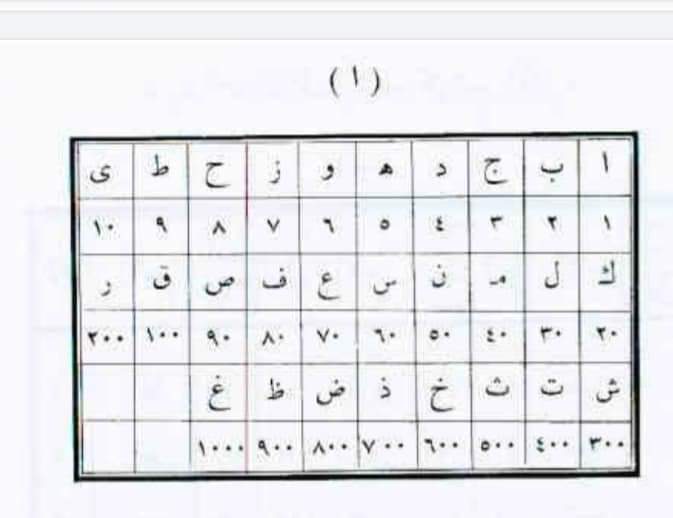 (١)
ا ب ج د ه و ز ح ط ى
١ ٢ ٣ ٤ ٥ ٦ ٧ ٨ ٩ ١٠
ك ل م ن س ع ف ص ق ر
٢٠ ٣٠ ٤٠ ٥٠ ٦٠ ٧٠ ٨٠ ٩٠ ١٠٠ ٢٠٠
ش ت ث خ ذ ض ظ غ
٣٠٠ ٤٠٠ ٥٠٠ ٦٠٠ ٧٠٠ ٨٠٠ ٩٠٠ ١٠٠٠